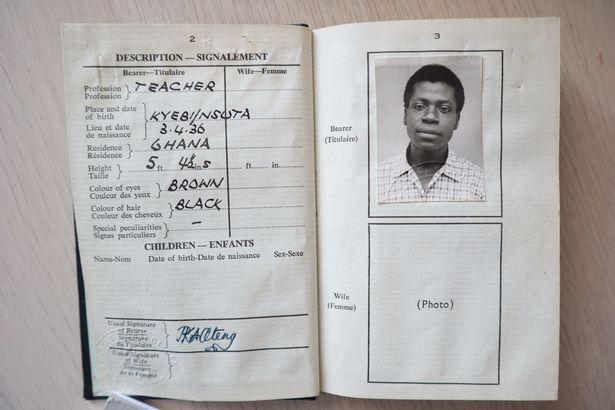 2
DESCRIPTION — SIGNALEMENT
Bearer—Titulaire Wife—Femme
Profession } TEACHER
Profession
Place and date
of birth } KYEBI/NSUTA
Lieu et date
de naissance } 3.4.36
Residence } GHANA
Résidence
Height } 5 ft. 4½ ins ft. in.
Taille
Colour of eyes } BROWN
Couleur des yeux
Colour of hair } BLACK
Couleur des cheveux
Special peculiarities } —
Signes particuliers
CHILDREN — ENFANTS
Name-Nom Date of birth-Date de naissance Sex-Sexe
Usual Signature
of Bearer
Signature
du Titulaire
Usual Signature
of Wife
Signature
de sa Femme
3
Bearer
(Titulaire)
Wife
(Femme)
(Photo)